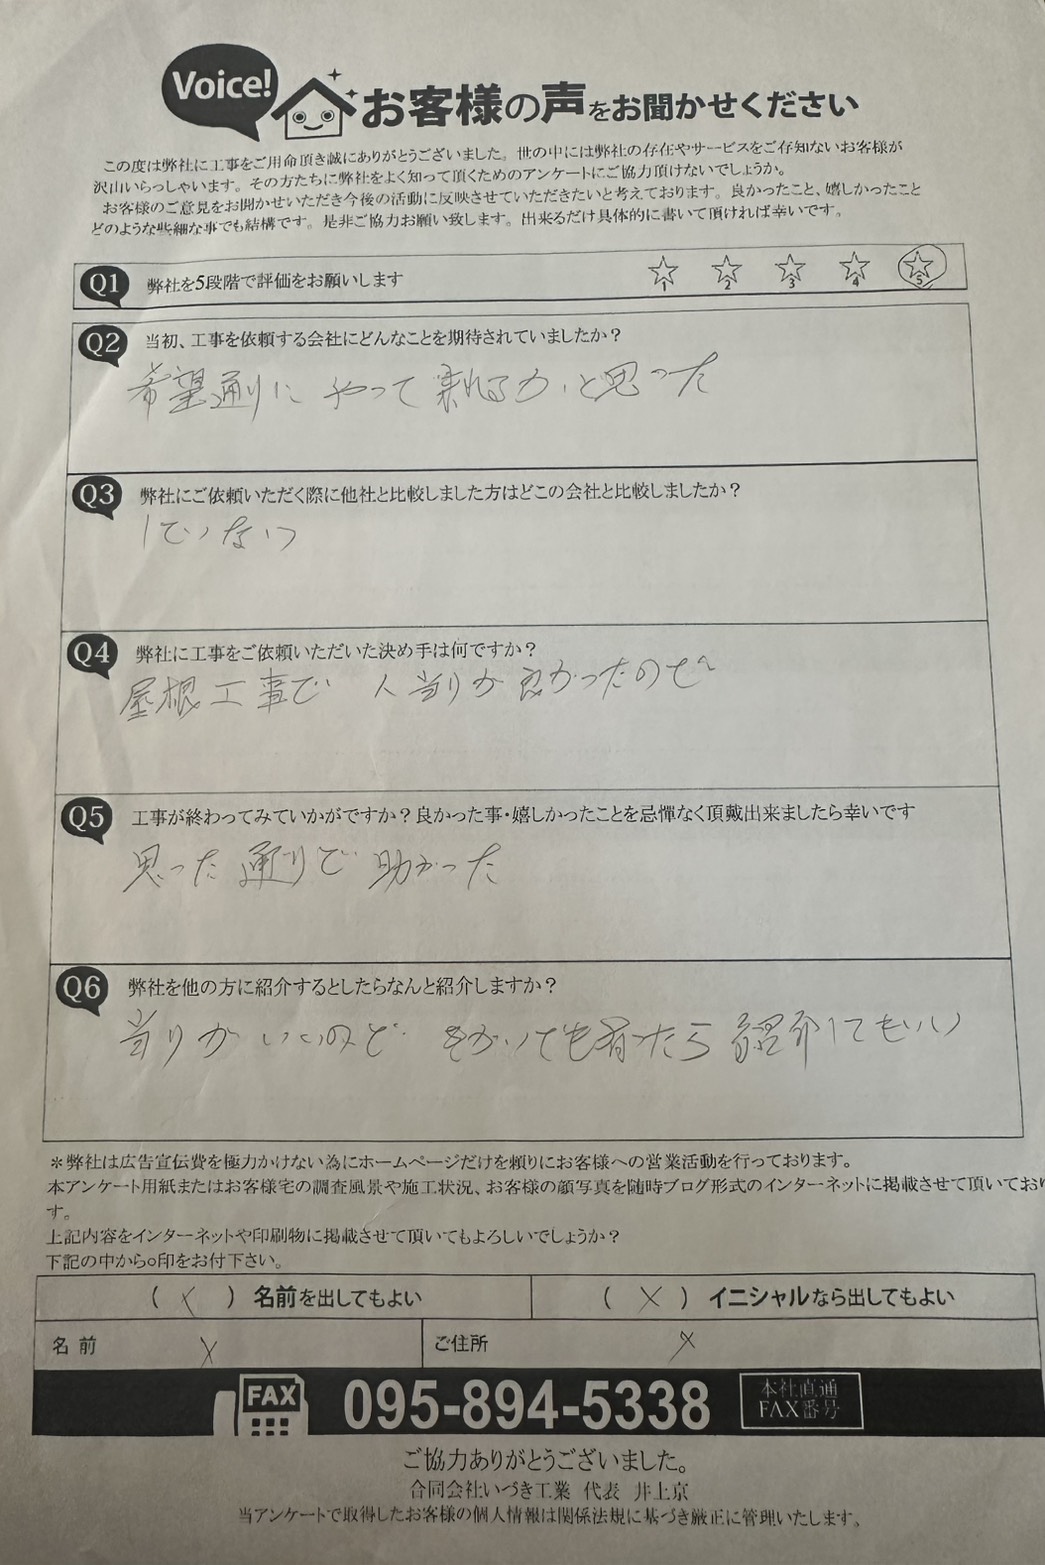 Voice!
お客様の声をお聞かせください
この度は弊社に工事をご用命頂き誠にありがとうございました。世の中には弊社の存在やサービスをご存知ないお客様が
沢山いらっしゃいます。その方たちに弊社をよく知って頂くためのアンケートにご協力頂けないでしょうか。
お客様のご意見をお聞かせいただき今後の活動に反映させていただきたいと考えております。良かったこと、嬉しかったこと
どのような些細な事でも結構です。是非ご協力お願い致します。出来るだけ具体的に書いて頂ければ幸いです。
Q1 弊社を5段階で評価をお願いします ☆1 ☆2 ☆3 ☆4 ☆5
Q2 当初、工事を依頼する会社にどんなことを期待されていましたか？
希望通りにやって来れるか、と思った
Q3 弊社にご依頼いただく際に他社と比較しました方はどこの会社と比較しましたか？
していない
Q4 弊社に工事をご依頼いただいた決め手は何ですか？
屋根工事で 人当りが良かったので
Q5 工事が終わってみていかがですか？良かった事・嬉しかったことを忌憚なく頂戴出来ましたら幸いです
思った通りで助かった
Q6 弊社を他の方に紹介するとしたらなんと紹介しますか？
当りがいいので 紹介してもいい
＊弊社は広告宣伝費を極力かけない為にホームページだけを頼りにお客様への営業活動を行っております。
本アンケート用紙またはお客様宅の調査風景や施工状況、お客様の顔写真を随時ブログ形式のインターネットに掲載させて頂いており
す。
上記内容をインターネットや印刷物に掲載させて頂いてもよろしいでしょうか？
下記の中から○印をお付下さい。
( × ) 名前を出してもよい ( × ) イニシャルなら出してもよい
名前 × ご住所 ×
FAX 095-894-5338 本社直通
FAX番号
ご協力ありがとうございました。
合同会社いづき工業 代表 井上京
当アンケートで取得したお客様の個人情報は関係法規に基づき厳正に管理いたします。